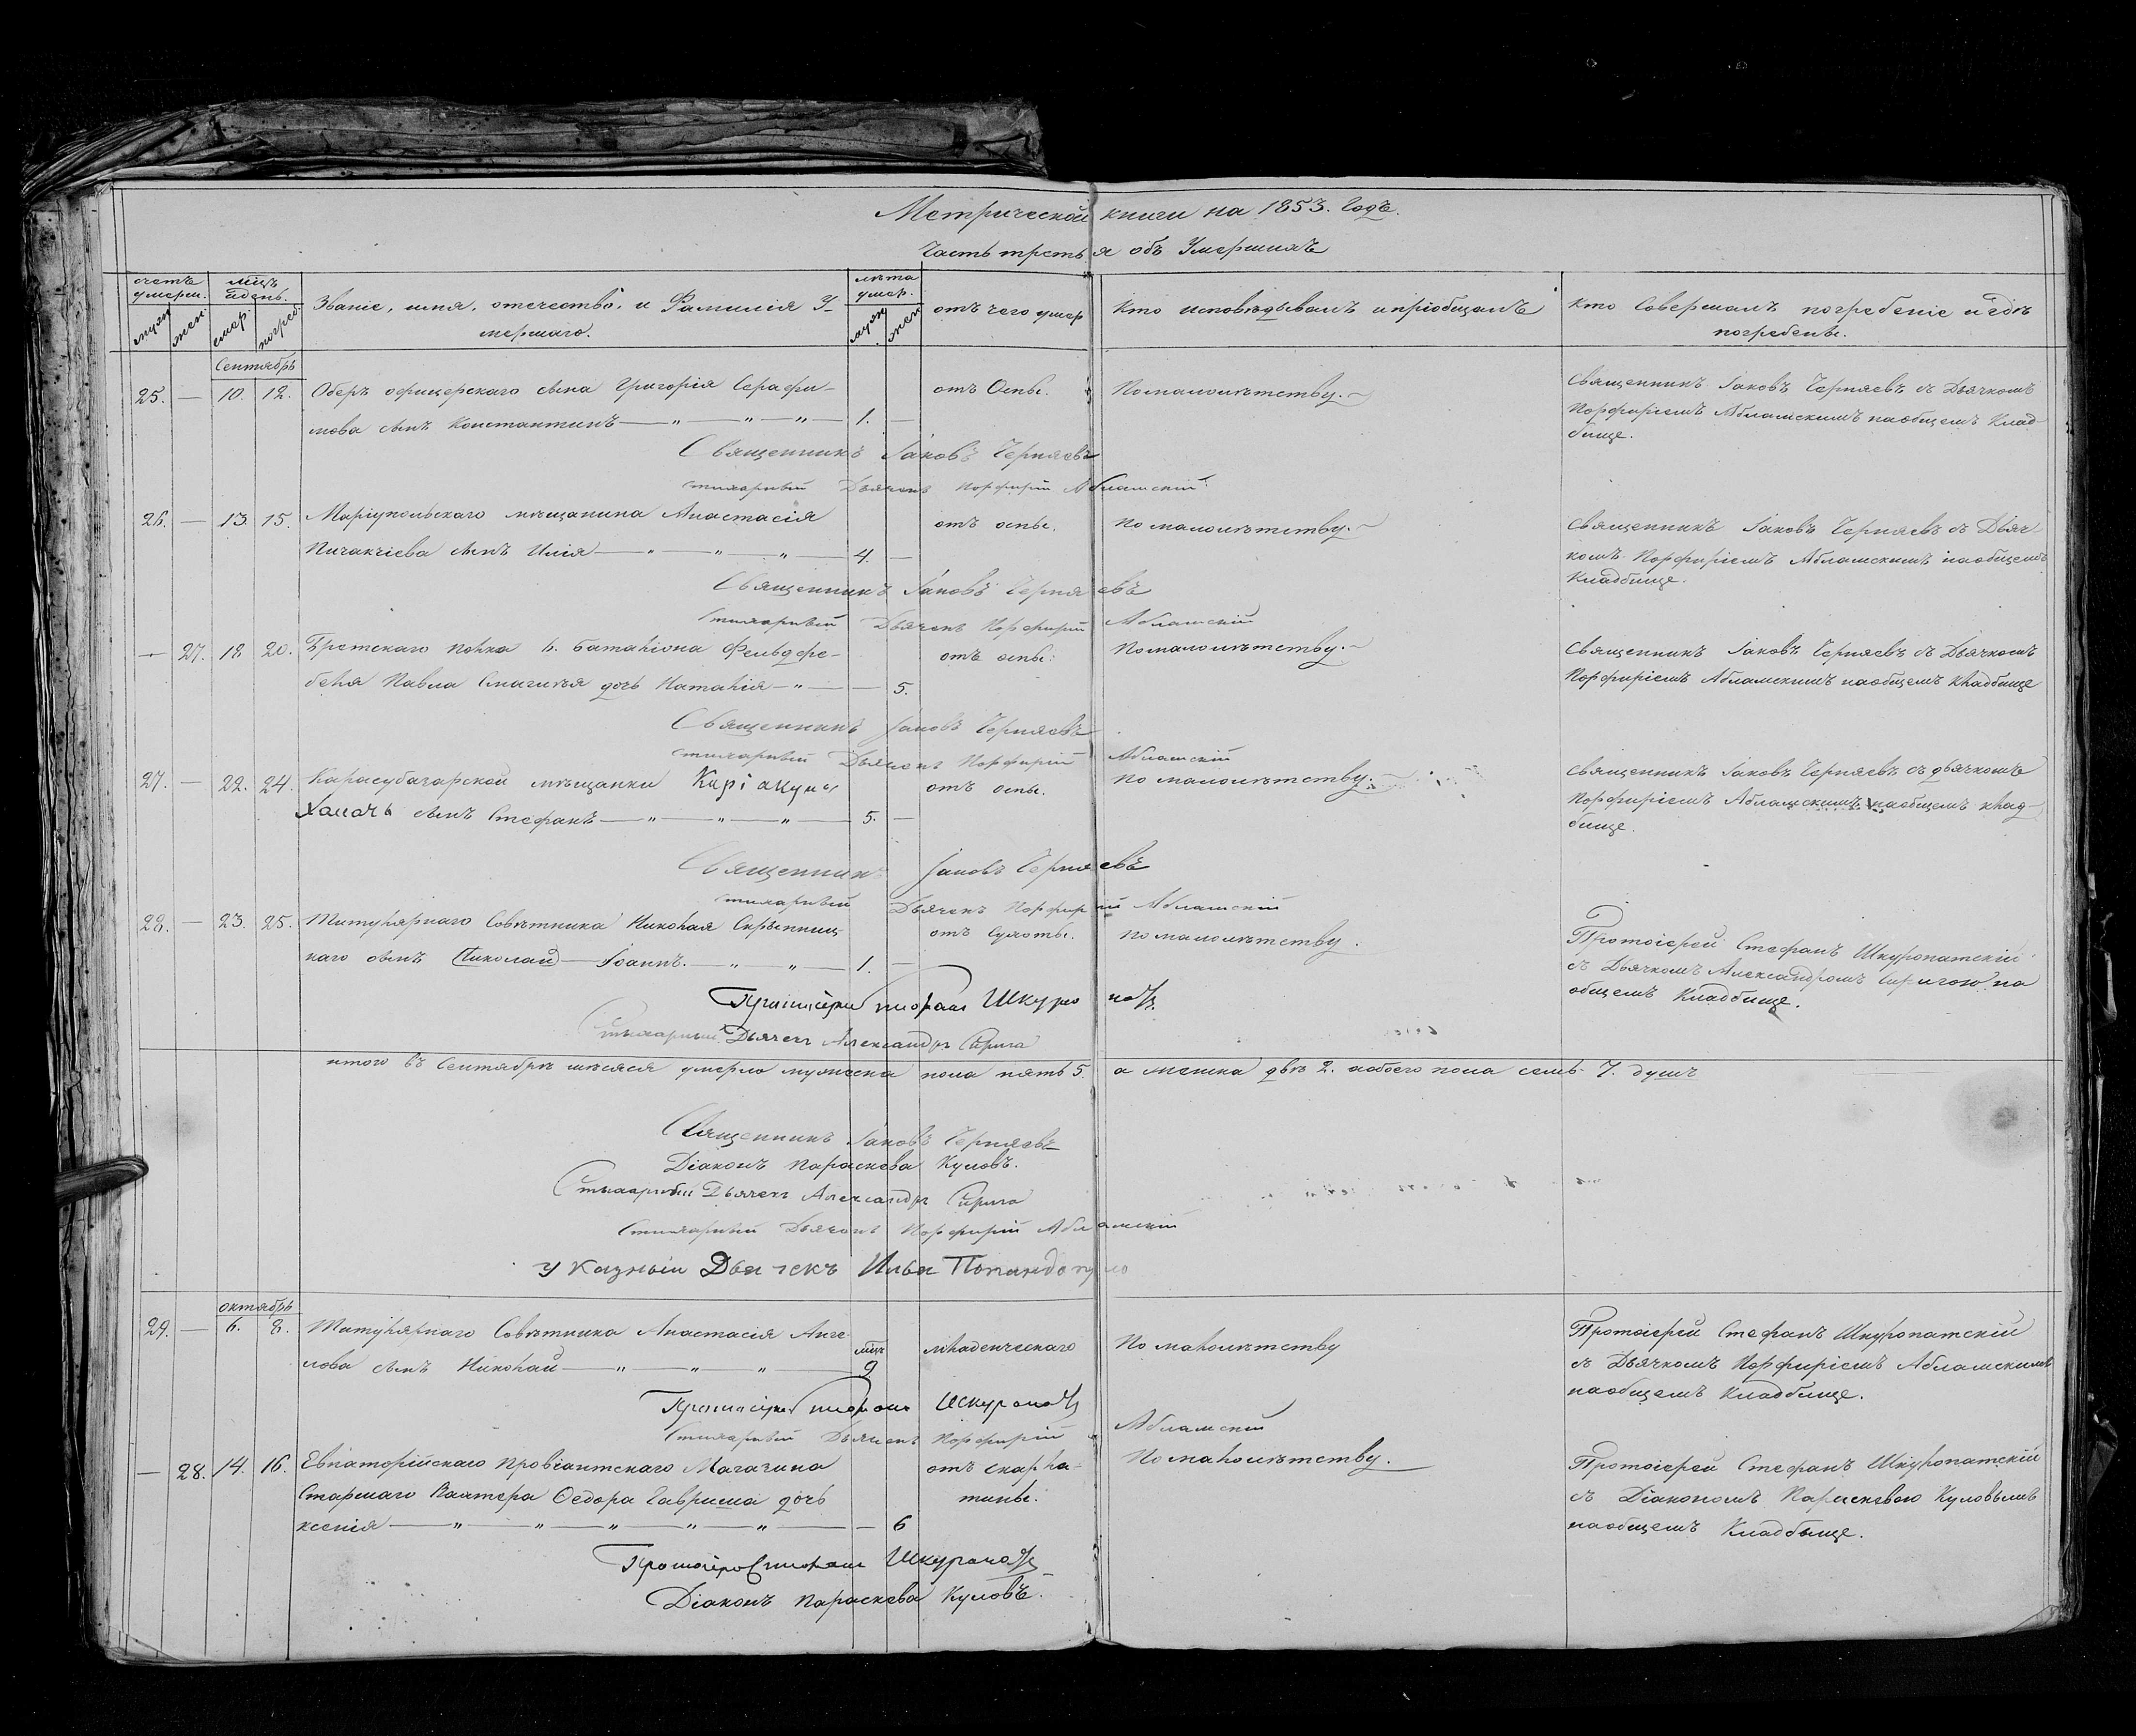 Метрической книги на 1853. Годъ.
Часть третья объ Умершихъ
счетъ умерш.
муж.
жен.
мѣцъ и день.
смер.
погреб.
Званіе, имя, отечество, и Фамилія У-
мершаго.
лѣта умер.
муж
жен
отъ чего умер
Кто исповѣдывалъ и пріобщалъ
Кто Совершалъ погребеніе и гдѣ
погребены.
Сентябрь
25. — 10. 12. Оберъ офицерскаго сына Григорія Серафи- отъ Оспы. По малолѣтству. Священникъ Іаковъ Черняевъ съ Дьячкомъ
мова сынъ Константинъ — „ — „ — „ — 1. — Порфиріемъ Абламскимъ на общемъ Клад-
бище.
Священникъ Іаковъ Черняевъ
Стихарный Дьячекъ Порфирій Абламскій
26. — 13. 15. Маріупольскаго мѣщанина Анастасія отъ оспы. По малолѣтству. Священникъ Іаковъ Черняевъ съ Дьяч-
Пичакчіева сынъ Илія — „ — „ — „ — 4. — комъ Порфиріемъ Абламскимъ на общемъ
Кладбище.
Священникъ Іаковъ Черняевъ
Стихарный Дьячекъ Порфирій Абламскій
— 27. 18 20. Бретскаго полка 6. баталіона Фельдфе- отъ оспы. По малолѣтству. Священникъ Іаковъ Черняевъ съ Дьячкомъ
беля Павла дочь Наталія — „ — — 5. Порфиріемъ Абламскимъ на общемъ кладбище
Священникъ Іаковъ Черняевъ
Стихарный Дьячекъ Порфирій Абламскій
27. — 22. 24. Карасубазарской мѣщанки отъ оспы. По малолѣтству. Священникъ Іаковъ Черняевъ съ дьячкомъ
сынъ Стефанъ — „ — „ — „ — 5. — Порфиріемъ Абламскимъ на общемъ клад-
бище.
Священникъ Іаковъ Черняевъ
Стихарный Дьячекъ Порфирій Абламскій
28. — 23. 25. Титулярнаго Совѣтника Николая отъ Сухоты. По малолѣтству. Протоіерей Стефанъ Шкуропатскій
наго сынъ Николай — Іоаннъ. — „ — „ — 1. — съ Дьячкомъ Александромъ Сиригою на
общемъ Кладбище.
Протоіерей Стефанъ Шкуропат.
Стихарный Дьячекъ Александръ Сирига
итого въ Сентябрѣ мѣсяцѣ умерло мужеска пола пять 5. а женска двѣ 2. а обоего пола семь 7. душъ
Священникъ Іаковъ Черняевъ
Діаконъ Параскева Куловъ.
Стихарный Дьячекъ Александръ Сирига
Стихарный Дьячекъ Порфирій Абламскій
Указный Дьячекъ Илья Попандопуло
октябрь
29. — 6. 8. Титулярнаго Совѣтника Анастасія Анге- мѣц младенческаго По малолѣтству Протоіерей Стефанъ Шкуропатскій
лова сынъ Николай — „ — „ — „ — 9 съ Дьячкомъ Порфиріемъ Абламскимъ
на общемъ Кладбище.
Протоіерей Стефанъ Шкуропат
Стихарный Дьячекъ Порфирій Абламскій
— 28. 14. 16. Евпаторійскаго провіантскаго Магазина отъ скарла- По малолѣтству. Протоіерей Стефанъ Шкуропатскій
Старшаго Вахтера Ѳедора Гавриша дочь тины. съ Діакономъ Параскевою Куловымъ
ксенія — „ — „ — „ — „ — „ — — 6 на общемъ Кладбище.
Протоіерей Стефанъ Шкуропат
Діаконъ Параскева Куловъ.